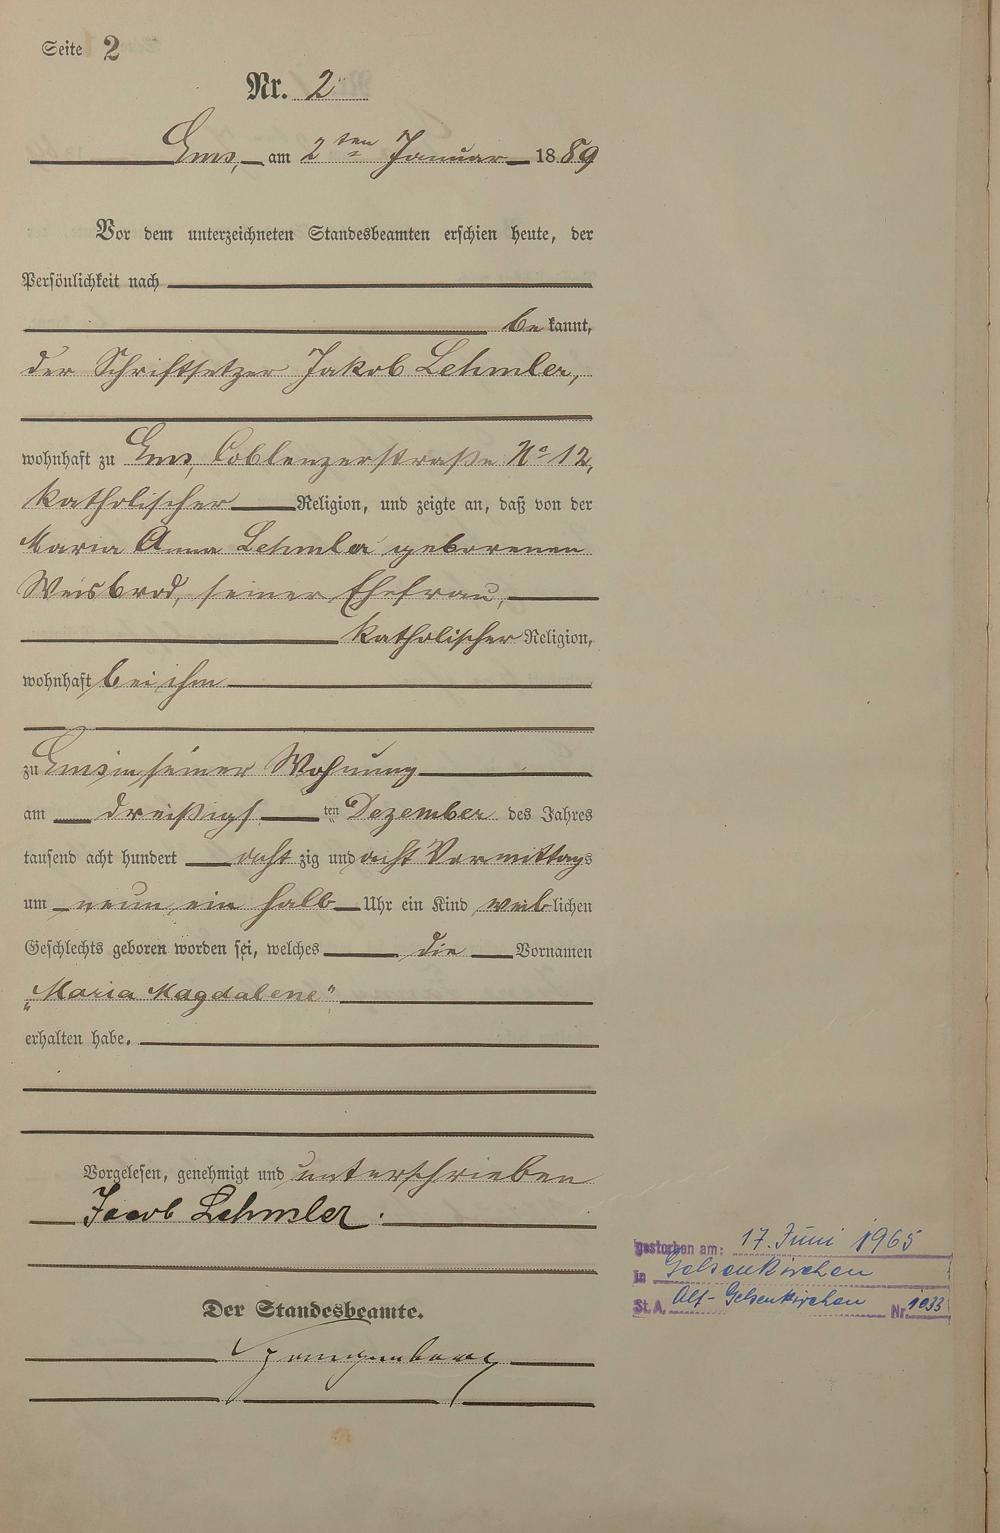 Seite 2
Nr. 2
Ems, am 2ten Januar 1889
Vor dem unterzeichneten Standesbeamten erschien heute, der
Persönlichkeit nach
bekannt,
der Schriftsetzer Jakob Lehmler,
wohnhaft zu Ems, Coblenzerstraße No 12,
katholischer Religion, und zeigte an, daß von der
Maria Anna Lehmler geborenen
Weisbrod, seiner Ehefrau,
katholischer Religion,
wohnhaft bei ihm
zu Ems in seiner Wohnung
am dreißigsten Dezember des Jahres
tausend acht hundert achtzig und acht Vormittags
um neun ein halb Uhr ein Kind weiblichen
Geschlechts geboren worden sei, welches die Vornamen
„Maria Magdalene"
erhalten habe.
Vorgelesen, genehmigt und unterschrieben
Jacob Lehmler.
Der Standesbeamte.
gestorben am: 17. Juni 1965
in Gelsenkirchen
St.A. Alt-Gelsenkirchen Nr. 1033